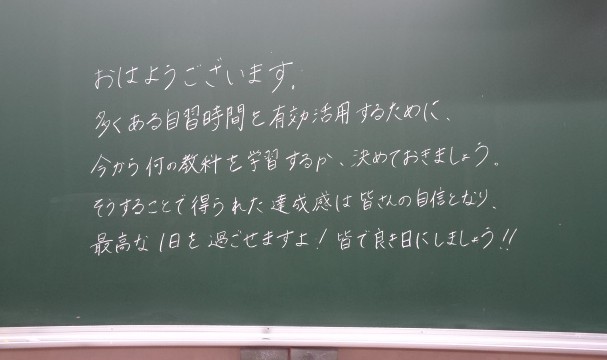 おはようございます。
多くある自習時間を有効活用するために、
今から何の教科を学習するか、決めておきましょう。
そうすることで得られた達成感は皆さんの自信となり、
最高な1日を過ごせますよ！皆で良き日にしましょう!!